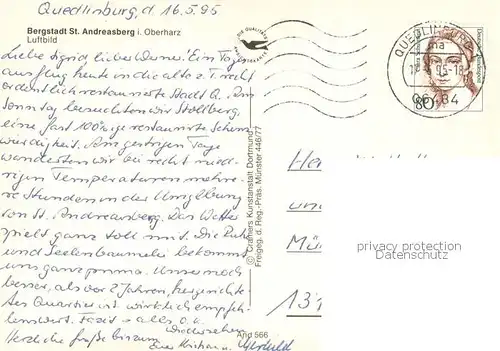 Quedlinburg, d. 16.5.95
Bergstadt St. Andreasberg i. Oberharz
Luftbild
Liebe Sigrid, lieber Werner! Ein Tages
ausflug heute in die alte z. T. recht
ordentlich restaurierte Stadt Q. Am
Sonntag besuchten wir Stollberg.
eine fast 100%ige restaurierte Sehens
würdigkeit. Am gestrigen Tage
wanderten wir bei recht nied-
rigen Temperaturen mehre-
re Stunden in der Umgebung
von St. Andreasberg. Das Wetter
spielt ganz toll mit. Die Ruhe
und Seelenbaumeln bekommt
uns ganz prima. Unser noch
besser, als vor 2 Jahren, hergerichte-
tes Quartier ist wirklich empfeh-
lenswert. Fazit = alles o.k.
Wiedersehen
Herzliche Grüße bis zum
Eure Christian u.
And 566
© Cramers Kunstanstalt Dortmund
Freigeg. d. Reg.-Präs. Münster 446/77
DIE QUALITÄTS
QUEDLINBURG
ma
95-18
06484
80
Deutsche Bundespost
He
un
Mü
131
privacy protection
Datenschutz